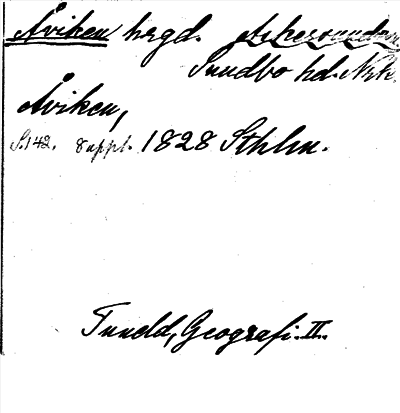 Åviken hrgd. Askersunds
Sundbo hd. Nrk.
Åviken,
S. 142. 8 uppl. 1828 Sthlm.
Tuneld, Geografi. II.